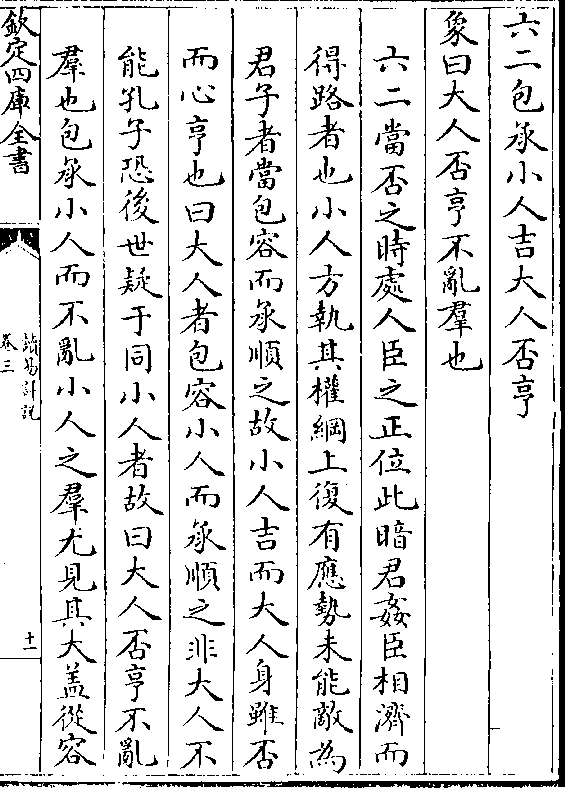 六二包承小人吉大人否亨
象曰大人否亨不亂羣也
六二當否之時處人臣之正位此暗君姦臣相濟而
得路者也小人方執其權綱上復有應勢未能敵為
君子者當包容而承順之故小人吉而大人身雖否
而心亨也曰大人者包容小人而承順之非大人不
能孔子恐後世疑于同小人者故曰大人否亨不亂
羣也包承小人而不亂小人之羣尤見其大蓋從容
欽定四庫全書
讀易詳說
卷三
十一